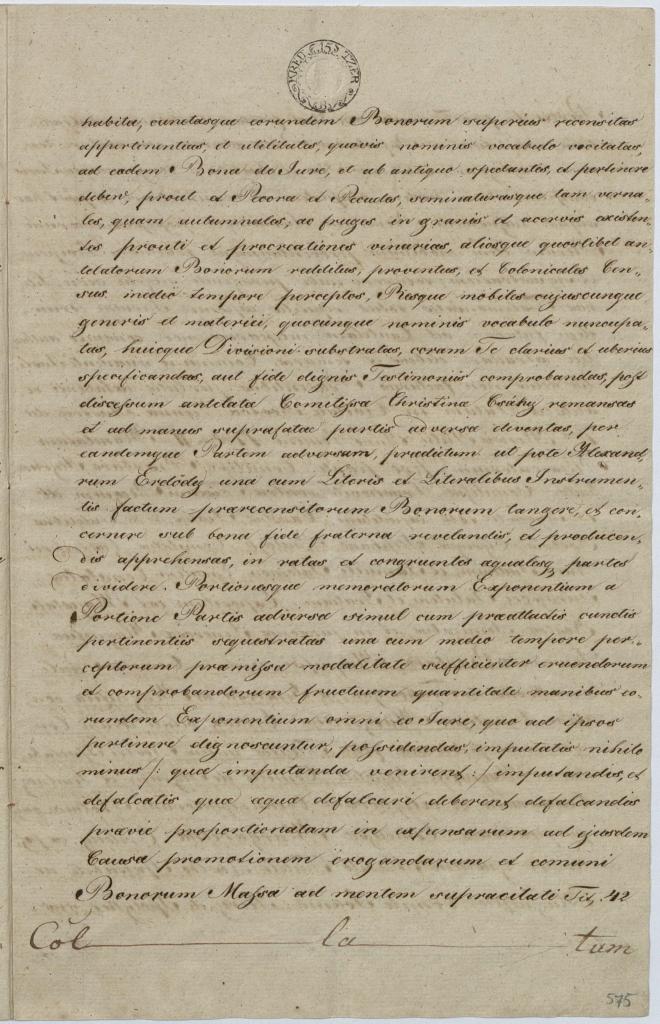 KRED. 15 S TZER
habita, cunctasque eorundem Bonorum superius recensitas
appertinentias, et utilitates, quovis nominis vocabulo vocitatas,
ad eadem Bona de Jure, et ab antiquo spectantes, et pertinere
debere, prout et Pecora et Pecudes, seminaturasque tam verna-
les, quam autumnales, ac fruges in granis et acervis existen-
tes prouti et procreationes vinarias, aliosque quoslibet an-
telatorum Bonorum redditus, proventus, et Colonicales Cen,,
sus medio tempore perceptos, Resque mobiles cujuscunque
generis et materiei, quocunque nominis vocabulo nuncupa-
tas, huicque Divisioni substratas, coram Te clarius et uberius
specificandas, aut fide dignis Testimoniis comprobandas, post
discessum antelatæ Comitissæ Christinæ Csáky remansas
et ad manus suprafatæ partis adversæ deventas, per
eandemque Partem adversam, prædictum ut pote Alexand,,
rum Erdődy una cum Literis et Literalibus Instrumen-
tis factum præcensitorum Bonorum tangere, et con,,
cernere sub bona fide fraterna revelandis, et producen,,
dis apprehensas, in ratas et congruentes æqualesq partes
dividere. Portionesque memoratorum Exponentium a
Portione Partis adversæ simul cum præattactis cunctis
pertinentiis sequestratas una cum medio tempore per,,
ceptorum præmissa modalitate sufficienter eruendorum
et comprobandorum fructuum quantitate manibus eo-
rundem Exponentium omni eo Jure, quo ad ipsos
pertinere dignoscuntur, possidendas, imputatis nihilo
minus /: quæ imputanda venirent :/ imputandis, et
defalcatis quæ æqua defalcari deberent defalcandis
prævie proportionatam in expensarum ad ejusdem
Causæ promotionem erogandarum et comuni
Bonorum Massa ad mentem supracitati Tit, 42
Col la tum
575